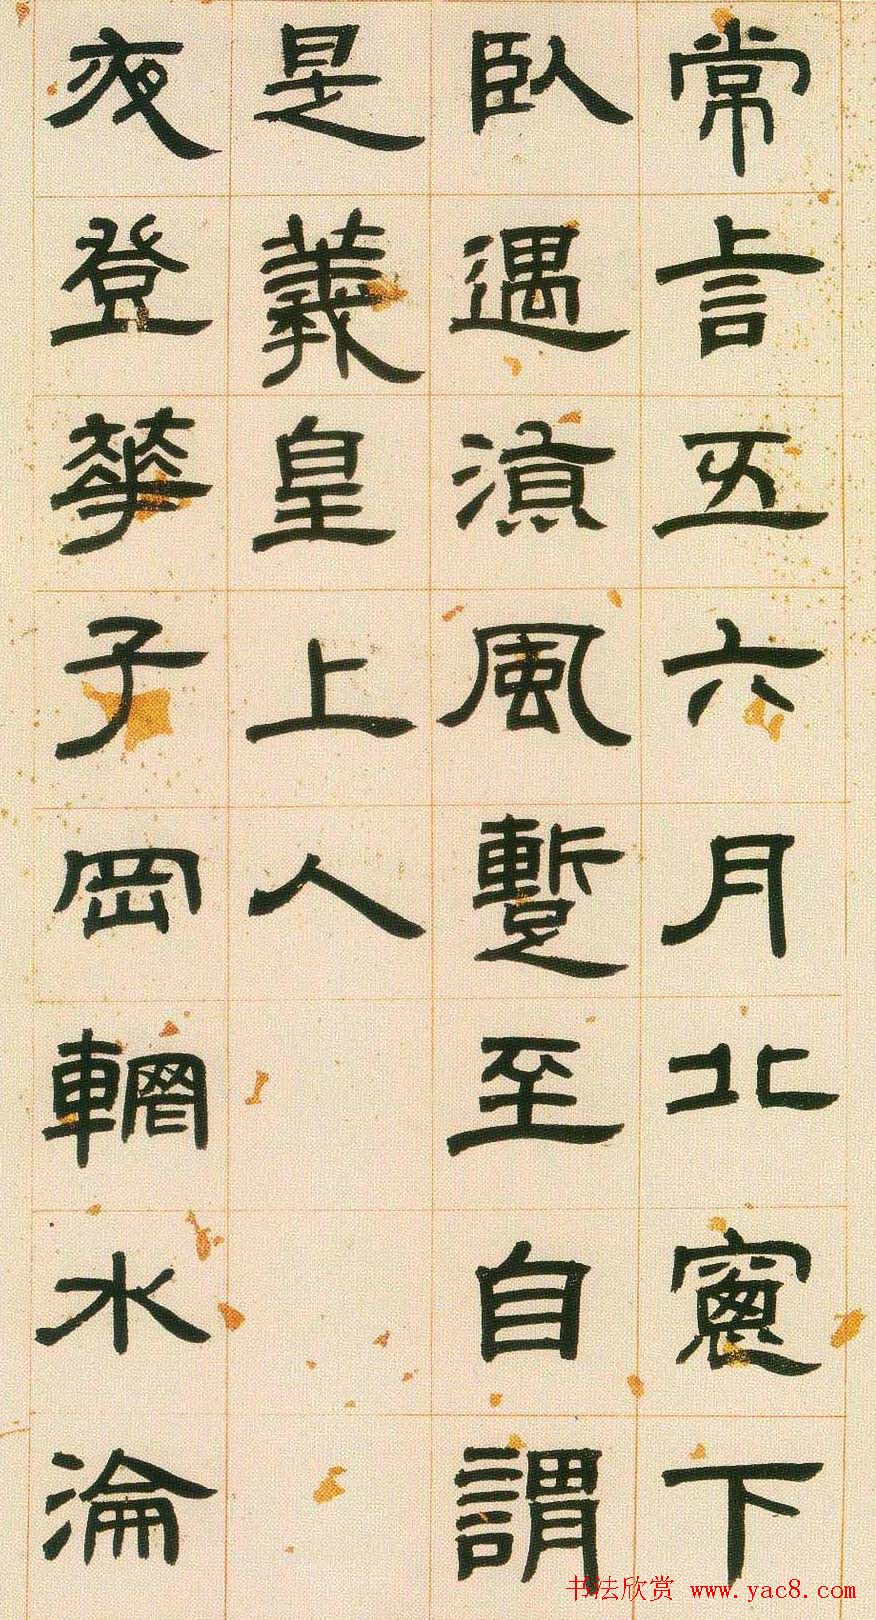 常言五六月北窗下
臥遇涼風暫至自謂
是羲皇上人
夜登華子岡輞水淪
书法欣赏 www.yac8.com